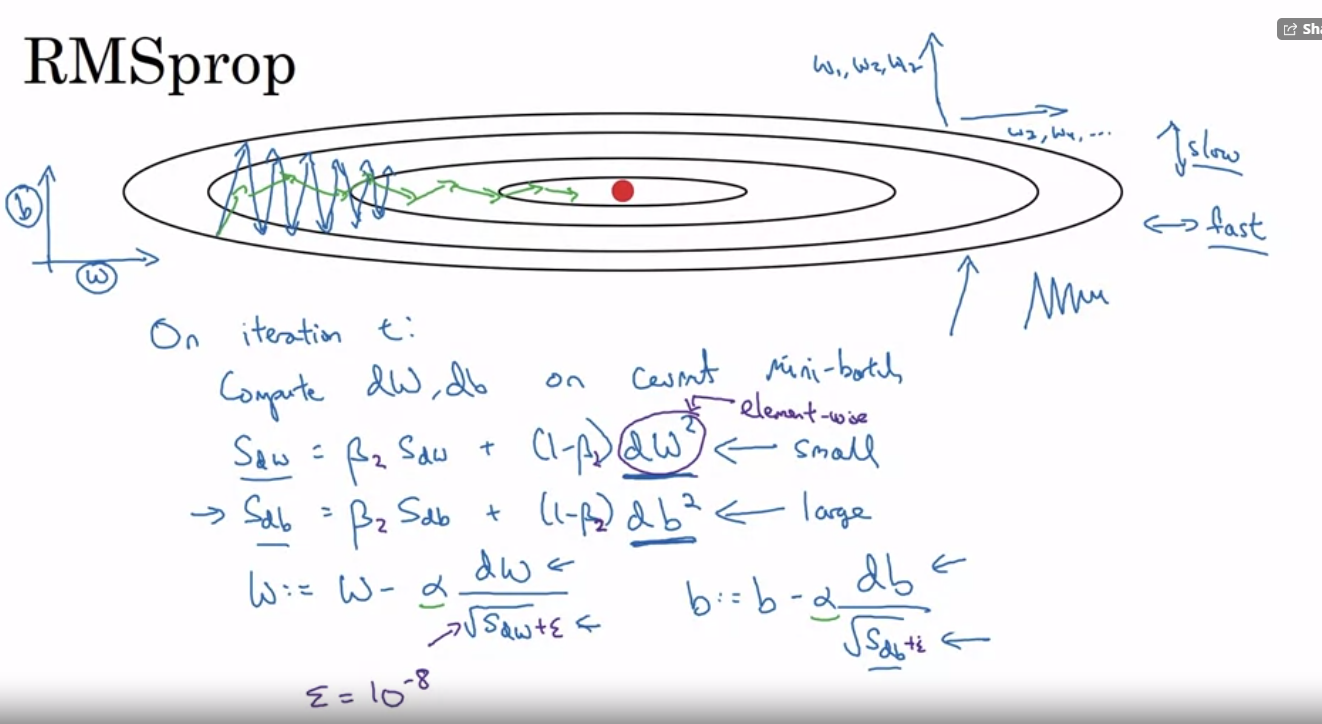 Sha
RMSprop
w₁, w₂, w₂
w₃, w₄, ...
slow
fast
b
w
On iteration t:
Compute dW, db on current mini-batch
element-wise
S_dw = β₂ S_dw + (1-β₂) dW² ← small
→ S_db = β₂ S_db + (1-β₂) db² ← large
W := W - α dW / √S_dw + ε ←
b := b - α db / √S_db + ε ←
ε = 10⁻⁸